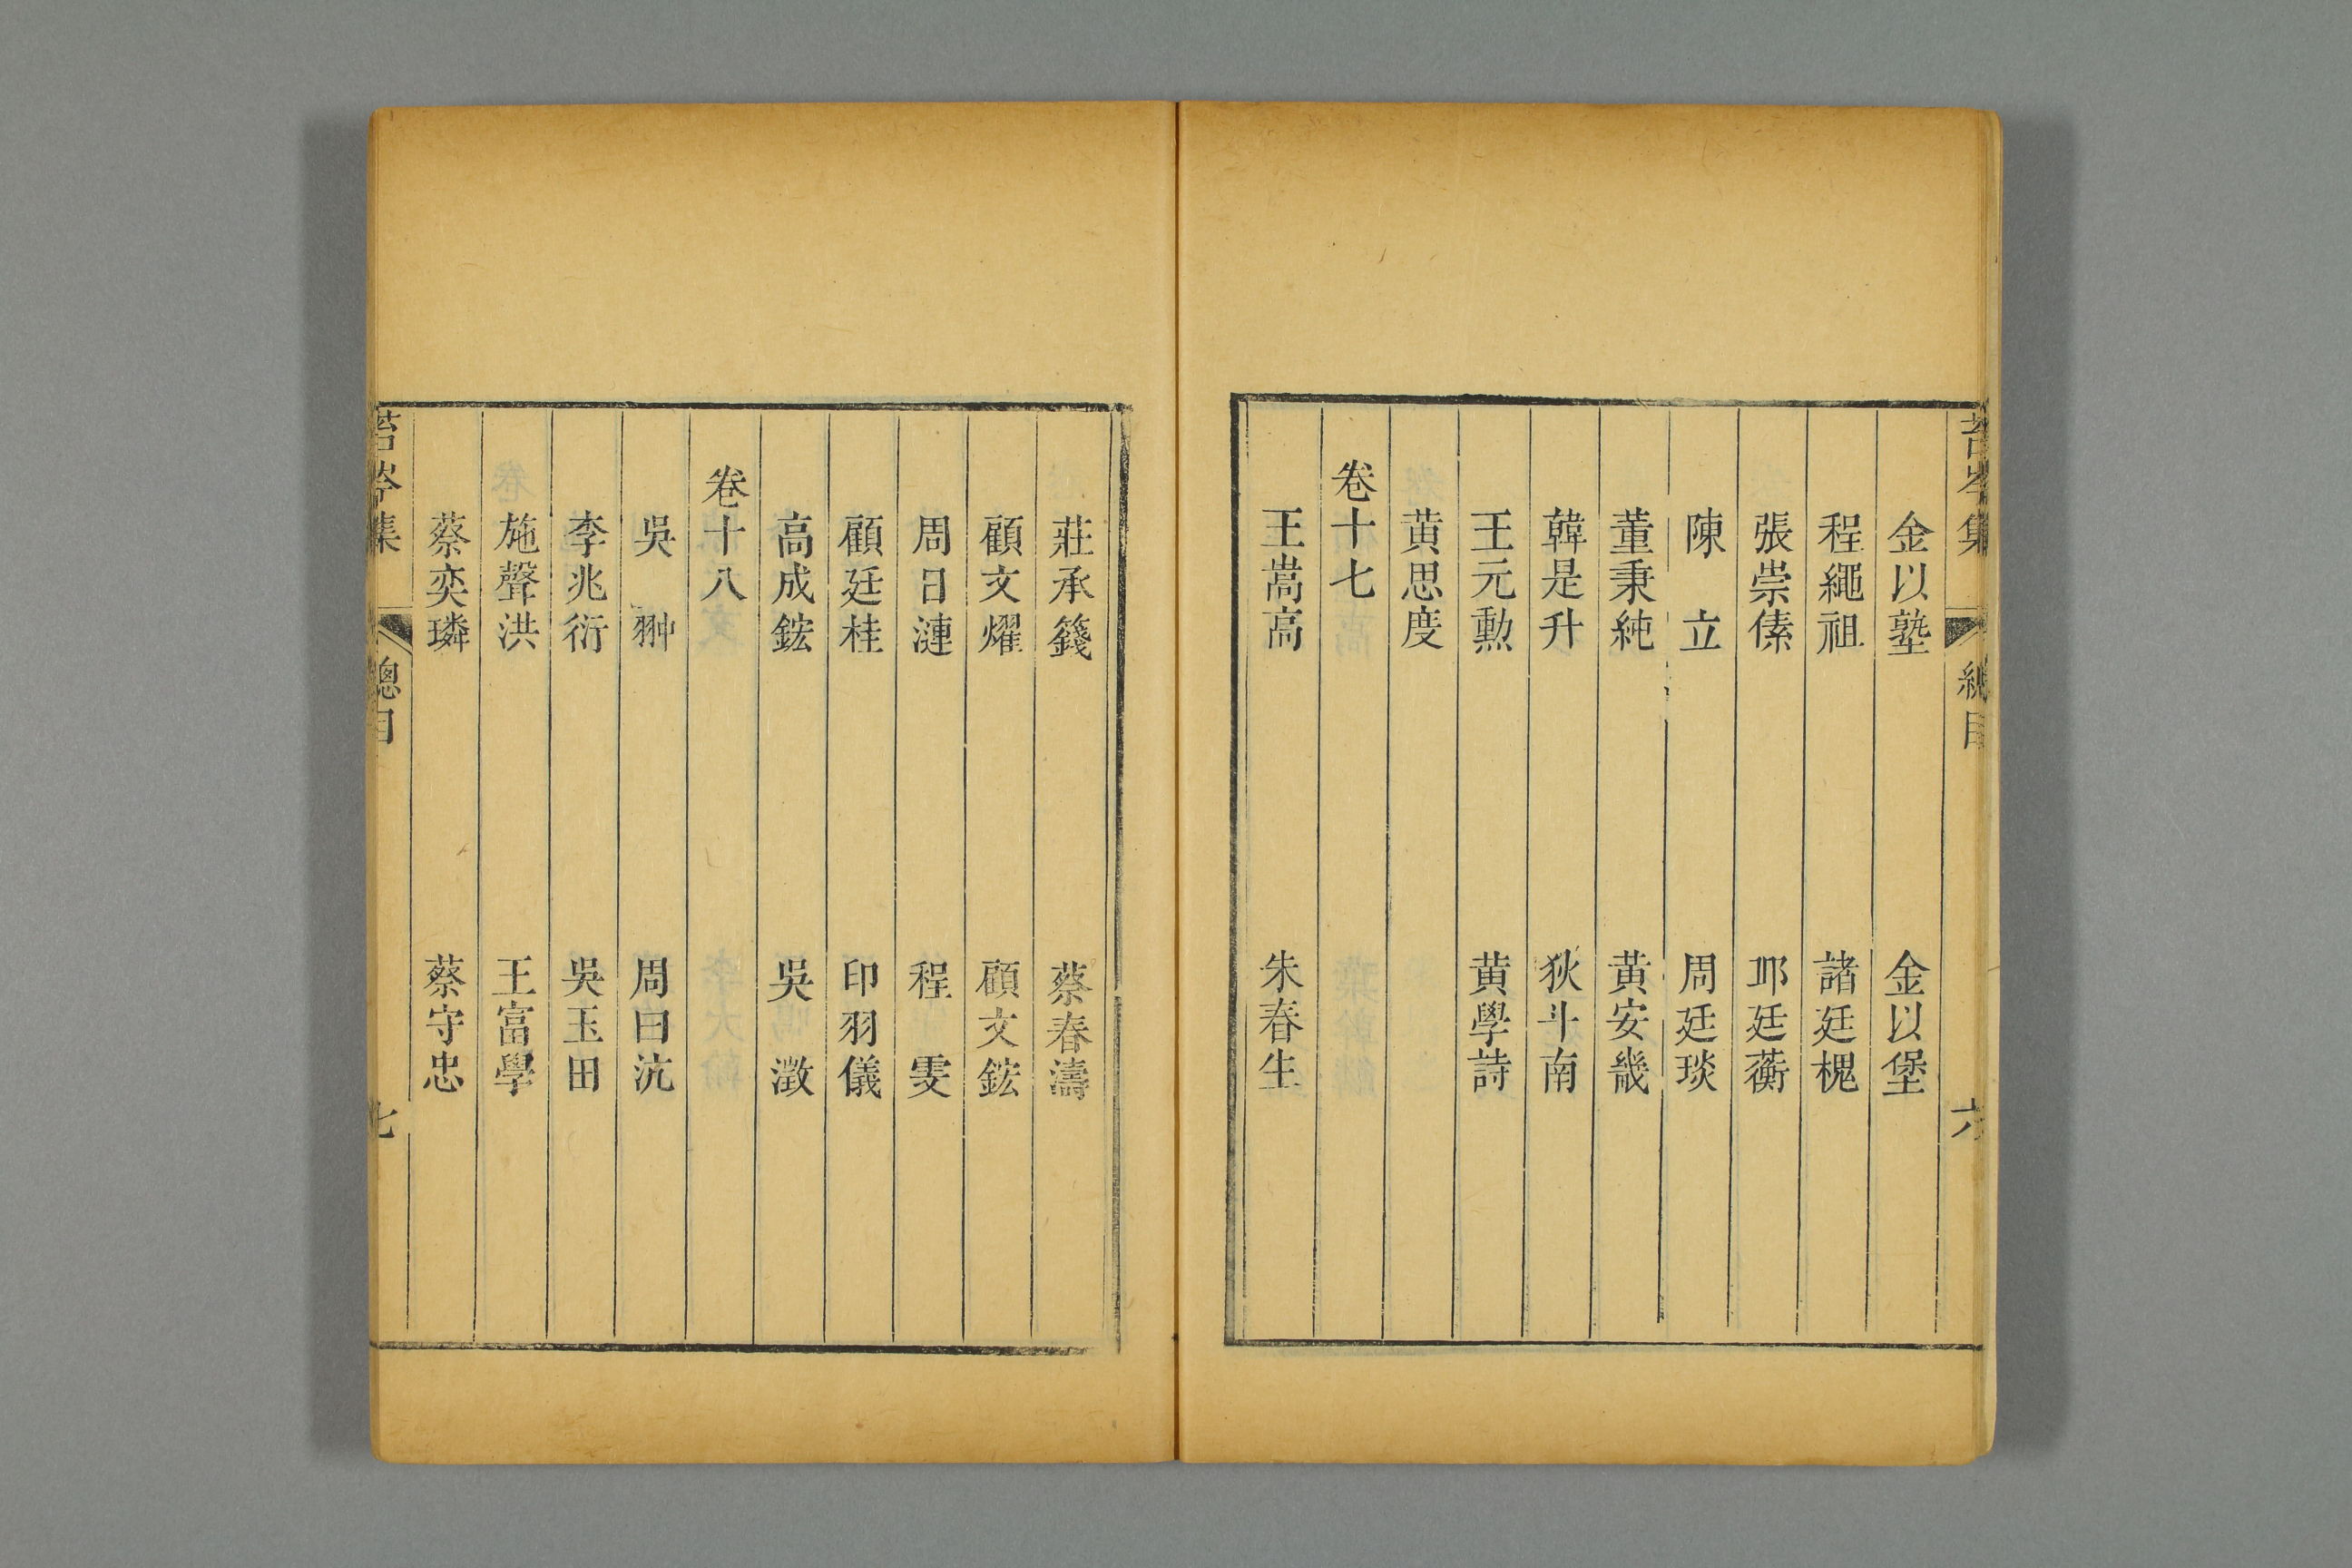 苔岑集 總目 六
金以塾 金以堡
程繩祖 諸廷槐
張崇傃 邛廷蘅
陳立 周廷琰
董秉純 黃安畿
韓是升 狄斗南
王元勲 黄學詩
黄思度
卷十七
王嵩高 朱春生
莊承籛 蔡春濤
顧文燿 顧文鋐
周日漣 程雯
顧廷桂 印羽儀
高成鋐 吳澂
卷十八
吳翀 周曰沆
李兆衍 吳玉田
施聲洪 王富學
蔡奕璘 蔡守忠
苔岑集 總目 七